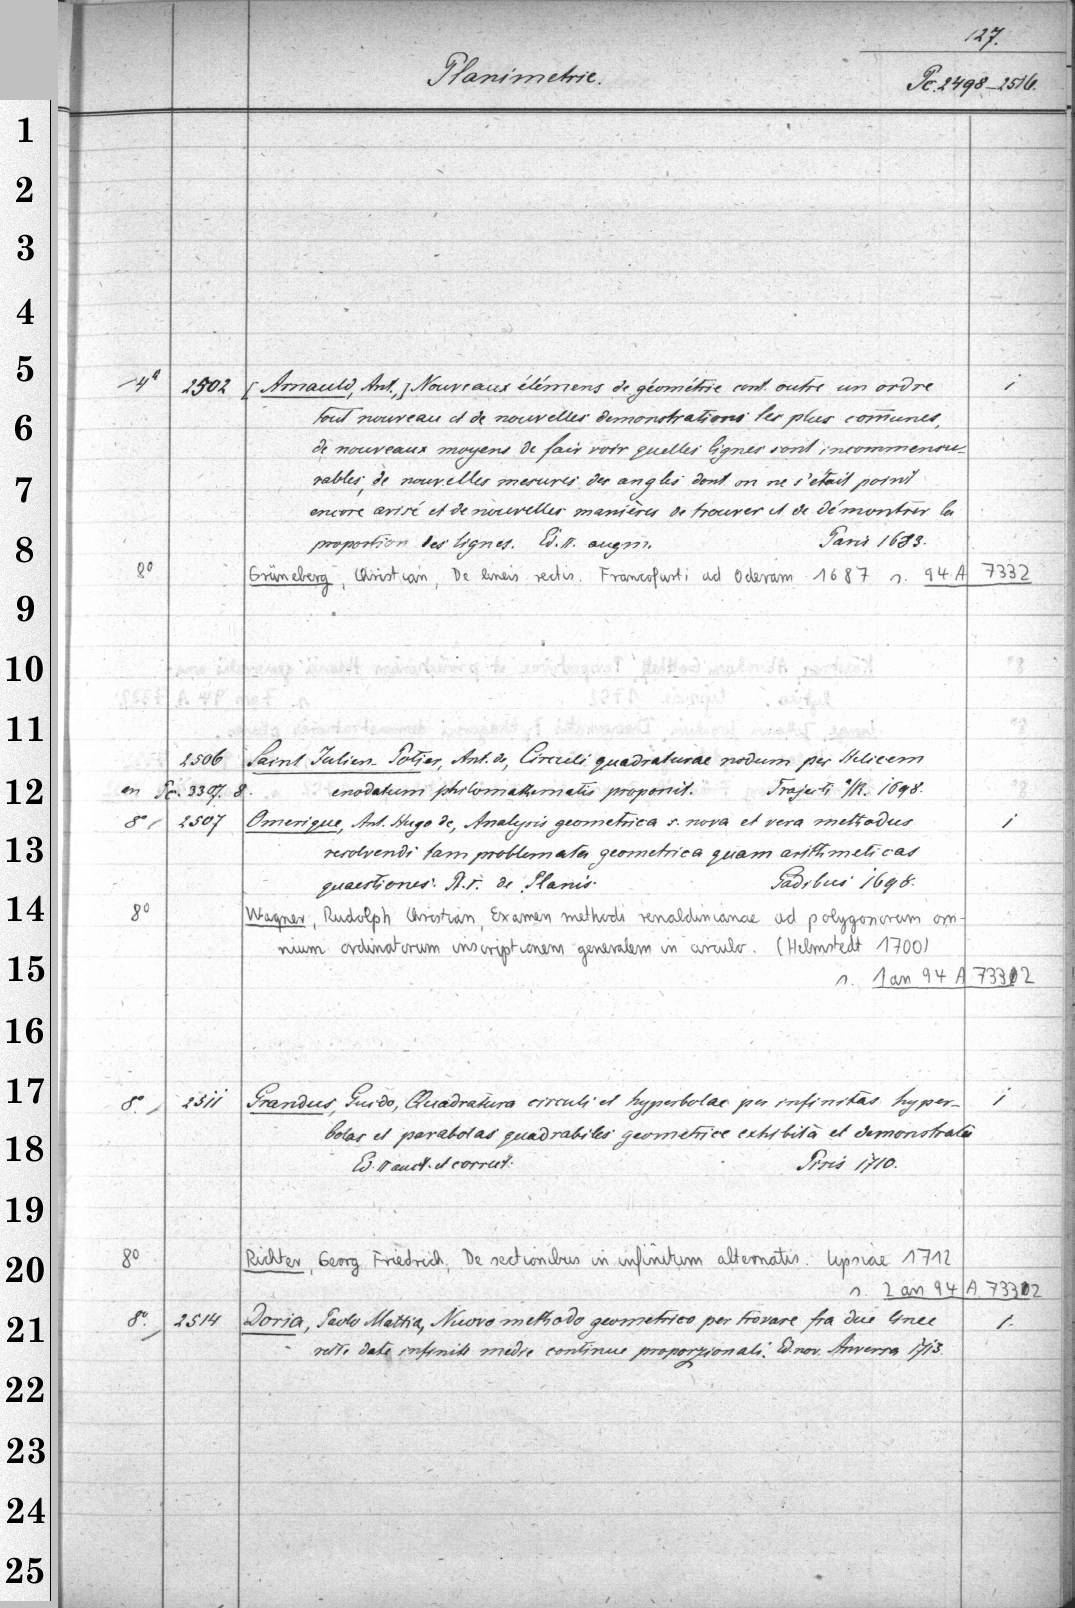 127.
Planimetrie.
Pc. 2498-2516.
1
2
3
4
5
4° 2502 [Arnauld, Ant.,] Nouveaux élémens de géométrie cont. outre un ordre 1
tout nouveau et de nouvelles demonstrations les plus com̄unes,
6
de nouveaux moyens de fair voir quelles lignes sont incommensu-
7
rables, de nouvelles mesures des angles dont on ne s'était point
encore avisé et de nouvelles manières de trouver et de démontrer la
8
proportion des lignes. Ed. II. augm. Paris 1683.
8° Grüneberg, Christian, De lineis rectis. Francofurti ad Oderam 1687 s. 94 A 7332
9
10
11
2506 Saint Julien Potier, Ant. de, Circuli quadraturae nodum per Helicem
12
an Pc. 3307. 8. enodatum philomathematis proponit. Trajecti a/R. 1698.
8° 2507 Omerique, Ant. Hugo de, Analysis geometrica s. nova et vera methodus 1
13
resolvendi tam problemata geometrica quam arithmeticas
quaestiones. P. I. de Planis. Gadibus 1698.
14
8° Wagner, Rudolph Christian, Examen methodi renaldinianae ad polygonorum om-
nium ordinatorum inscriptionem generalem in circulo. (Helmstedt 1700)
15
s. 1 an 94 A 7332
16
17
8° 2511 Grandus, Guido, Quadratura circuli et hyperbolae per infinitas hyper- 1
18
bolas et parabolas quadrabiles geometrice exhibita et demonstrata
Ed. II auct. et correct. Pisis 1710.
19
20
8° Richter, Georg Friedrich, De sectionibus in infinitum alternatis. Lipsiae 1712
s. 2 an 94 A 7332
21
8° 2514 Doria, Paolo Mattia, Nuovo methodo geometrico per trovare fra due linee 1.
rette date infinite medie continue proporzionali. Ed. nov. Anversa 1713.
22
23
24
25